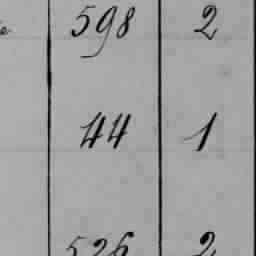 598 2
44 1
526 2